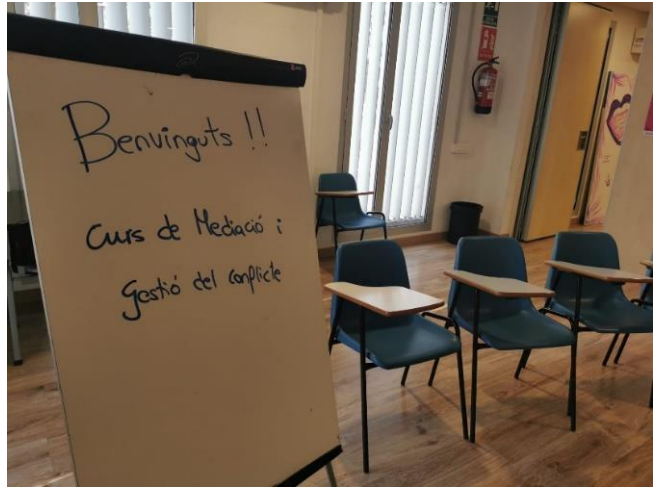 Benvinguts !!
Curs de Mediació i
Gestió del conflicte